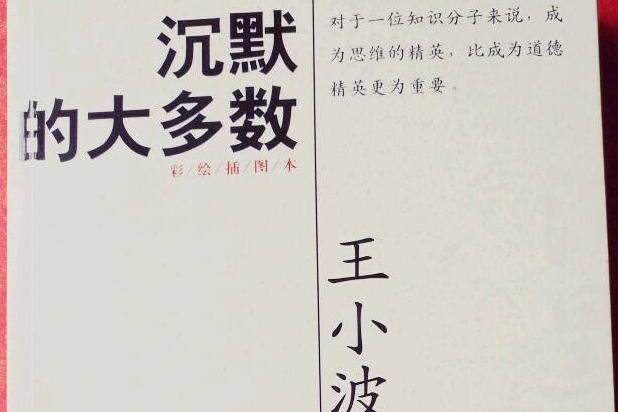 沉默
的大多数
彩/绘/插/图/本
对于一位知识分子来说，成
为思维的精英，比成为道德
精英更为重要。
王小波